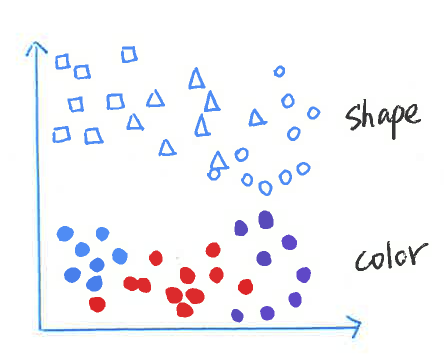 shape
color